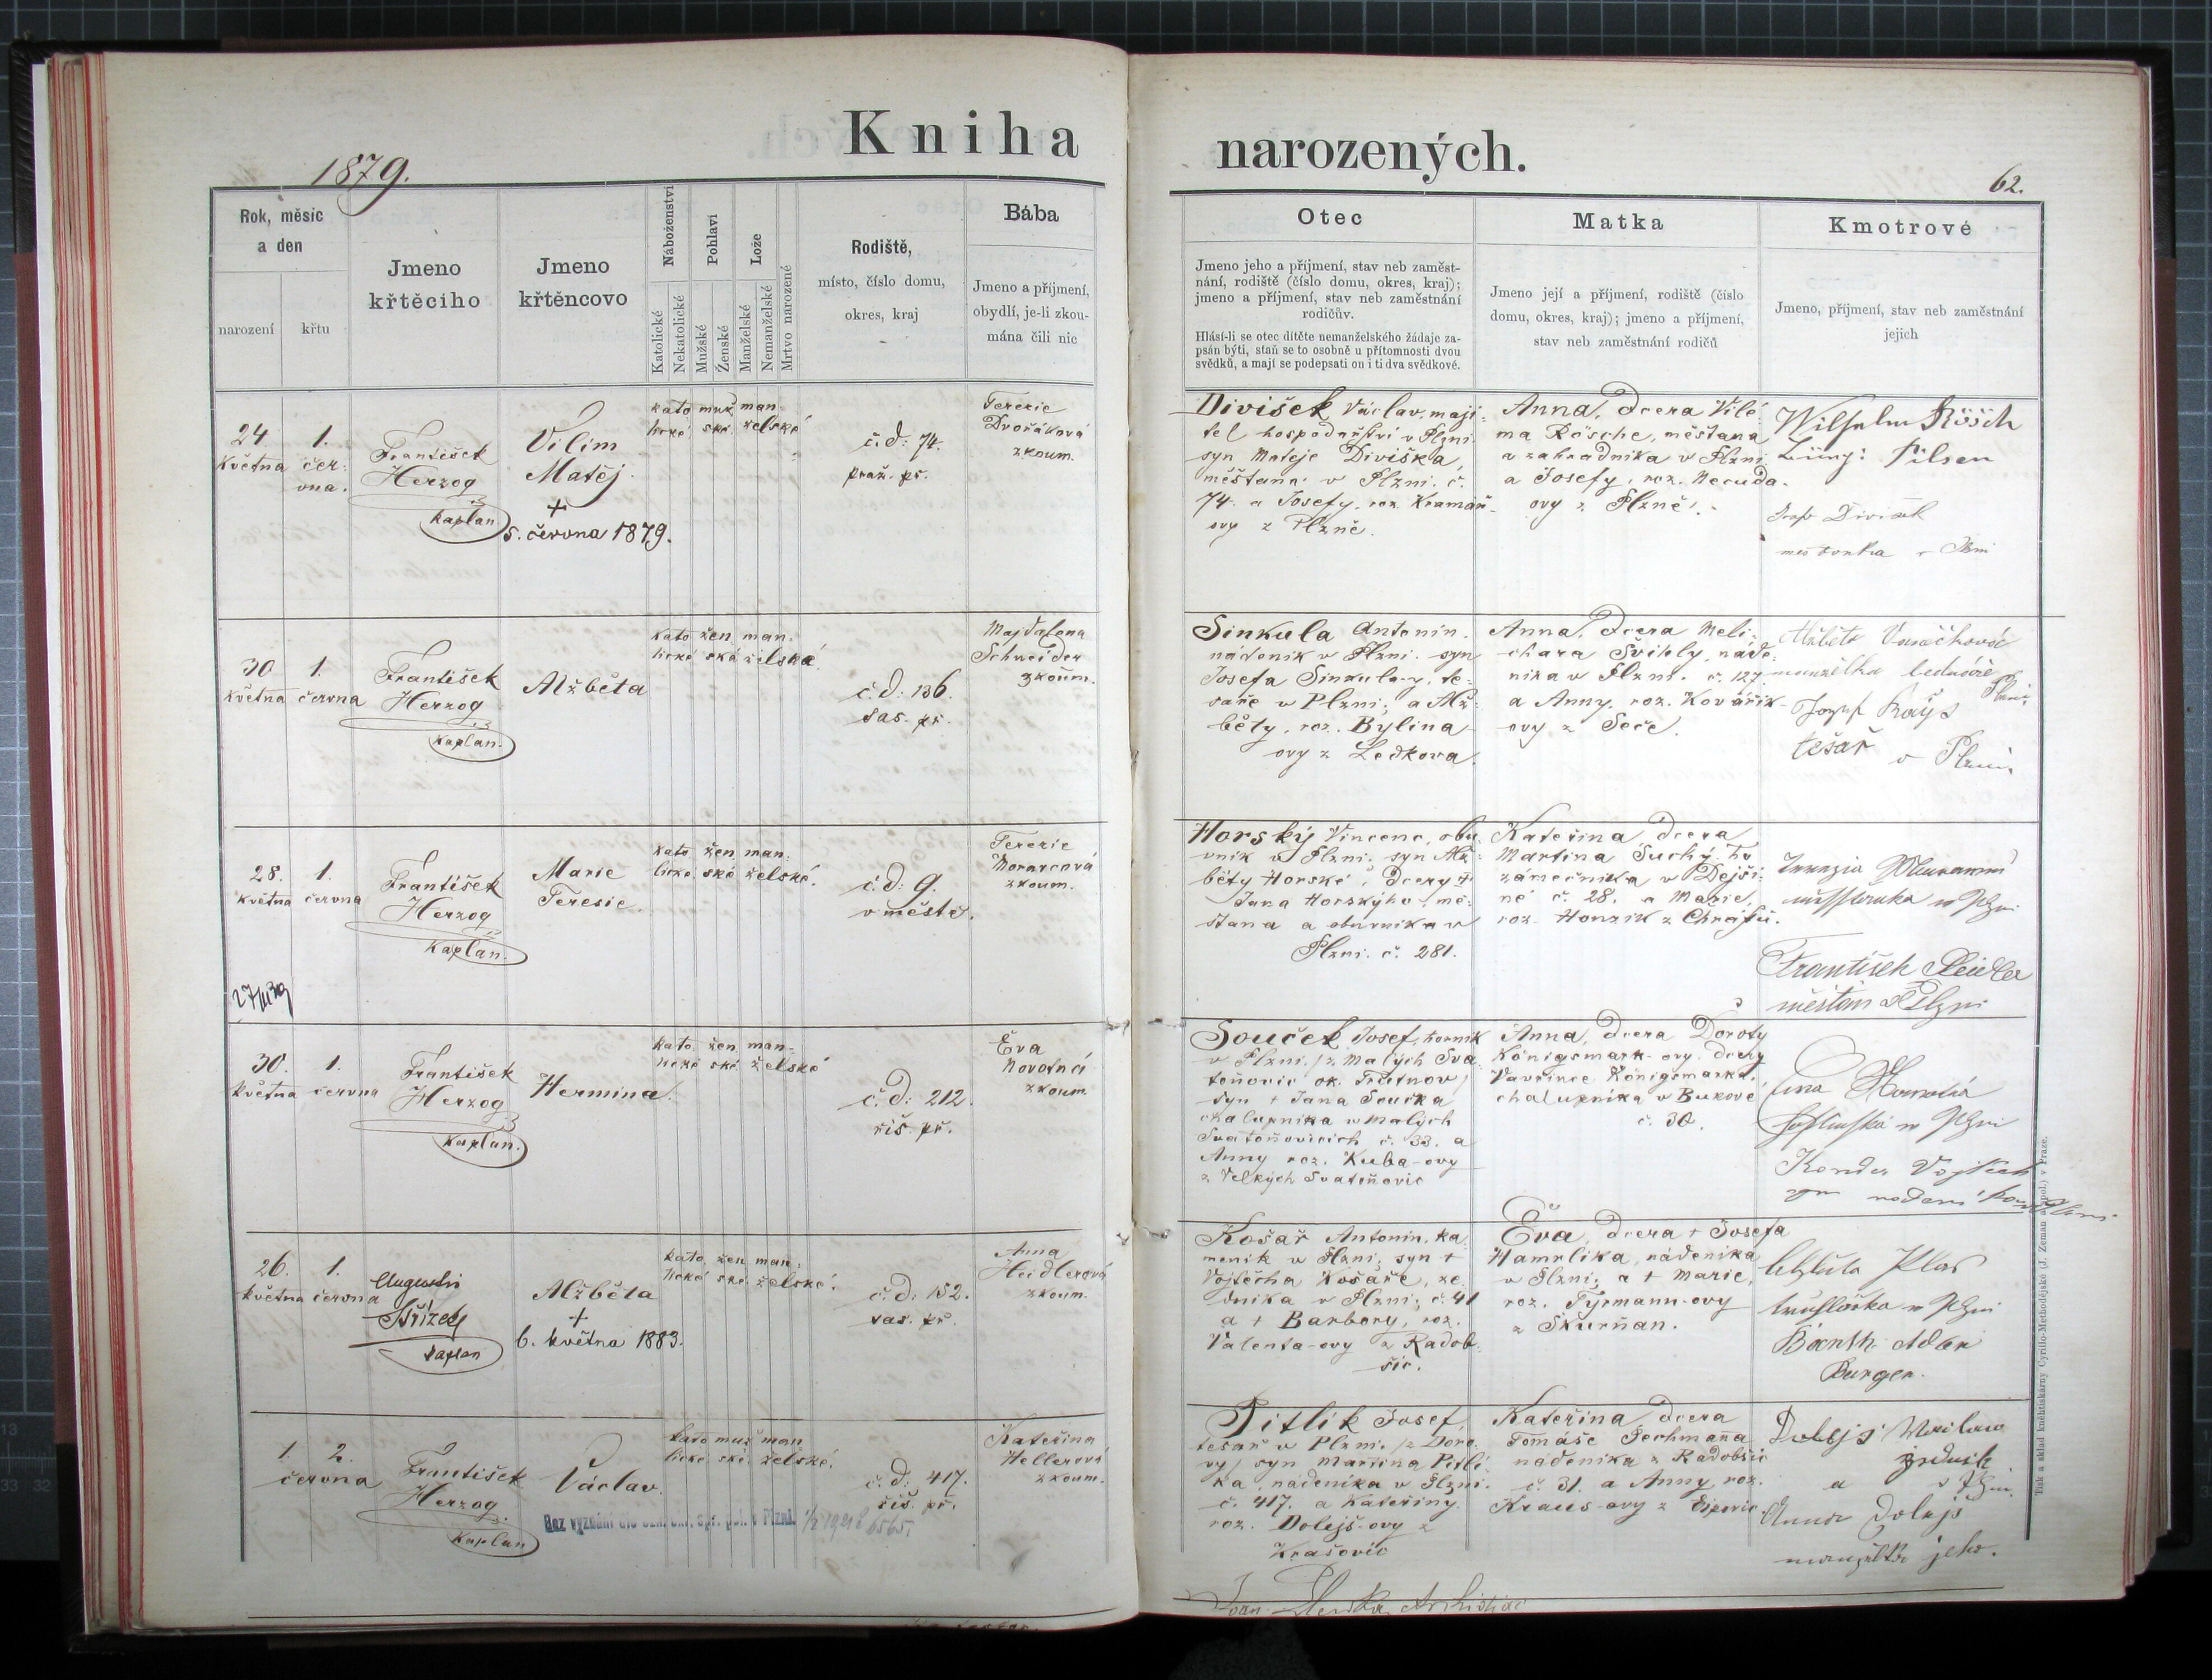 Kniha narozených.
1879.
62.
Rok, měsíc
a den
narození
křtu
Jmeno
křtěcího
Jmeno
křtěncovo
Náboženství
Katolické
Nekatolické
Pohlaví
Mužské
Ženské
Lože
Manželské
Nemanželské
Mrtvo narozené
Rodiště,
místo, číslo domu,
okres, kraj
Bába
Jmeno a příjmení,
obydlí, je-li zkou-
mána čili nic
Otec
Jmeno jeho a příjmení, stav neb zaměst-
nání, rodiště (číslo domu, okres, kraj);
jmeno a příjmení, stav neb zaměstnání
rodičův.
Hlásí-li se otec dítěte nemanželského žádaje za-
psán býti, staň se to osobně u přítomnosti dvou
svědků, a mají se podepsati on i ti dva svědkové.
Matka
Jmeno její a příjmení, rodiště (číslo
domu, okres, kraj); jmeno a příjmení,
stav neb zaměstnání rodičů
Kmotrové
Jmeno, příjmení, stav neb zaměstnání
jejich
24
května
1.
čer-
vna.
František
Herzog
kaplan
Vilím
Matěj.
+
5. června 1879.
kato muž man
lické ské želské
č. d: 74.
praž. př.
Terezie
Dvořáková
zkoum.
Divišek Václav, maji-
tel hospodářství v Plzni.
syn Matěje Diviška,
měštana v Plzni. č.
74. a Josefy, roz. Kramář-
ovy z Plzně.
Anna, dcera Vilé-
ma Rösche, měštana
a zahradníka v Plzni
a Josefy, roz. Neruda-
ovy z Plzně.
Wilhelm Rösch
Pilsen
Divišek
30
května
1.
června
František
Herzog
kaplan.
Alžběta
kato žen man-
lické ská želská
č. d: 136.
sas. př.
Majdalena
Schneider
zkoum.
Sinkula Antonín.
nádeník v Plzni. syn
Josefa Sinkula-y, te-
saře v Plzni; a Alž-
běty, roz. Bylina-
ovy z Ledkova.
Anna, dcera Meli-
chara Švihly, náde-
níka v Plzni. č. 127.
a Anny, roz. Kovářík-
ovy z Seče.
manželka bednáře
tesař v Plzni
28.
května
1.
června
František
Herzog
kaplan.
Marie
Teresie
kato žen man-
lické ské želské.
č. d: 9.
v městě.
Terezie
Moravcová
zkoum.
Horský Vincenc, obu-
vník v Plzni. syn Alž-
běty Horské, dcery +
Jana Horskýho, mě-
štana a obuvníka v
Plzni. č. 281.
Kateřina, dcera
Martina Suchý-ho
zámečníka v Dejši-
né č. 28. a Marie,
roz. Honzík z Chrástu.
František
měštan v Plzni
30.
května
1.
června
František
Herzog
kaplan.
Hermina.
kato žen man-
lické ské želské
č. d: 212.
říš. př.
Eva
Novotná
zkoum.
Souček Josef, horník
v Plzni, /z Malých Sva-
toňovic ok. Trutnov/
syn + Jana Součka
chalupníka v Malých
Svatoňovicích č. 33. a
Anny roz. Kuba-ovy
z Velkých Svatoňovic
Anna, dcera Doroty
Königsmark-ovy. dcery
Vavřince Königsmarka,
chalupníka v Bukové
č. 30.
v Plzni
Vojtěch
26.
května
1.
června
Augustin
Střízek
kaplan
Alžběta
+
6. května 1883.
kato žen man-
lické ské želské.
č. d: 152.
sas. př.
Anna
Heidlerová
zkoum.
Košař Antonín, ka-
meník v Plzni; syn +
Vojtěcha Košaře, ze-
dníka v Plzni; č. 41
a + Barbory, roz.
Valenta-ovy z Radob-
šic.
Eva, dcera + Josefa
Hamrlíka, nádeníka
v Plzni; a + Marie,
roz. Tyrmann-ovy
z Skurňan.
v Plzni
Adam
Burger.
1.
2.
června
František
Herzog
kaplan
Václav.
kato muž man
lické ské želské.
č. d: 417.
říš. př.
Kateřina
Hellerová
zkoum.
Pitlík Josef,
tesař v Plzni. /z Doro-
vy/ syn Martina Pitlí-
ka, nádeníka v Plzni.
č. 417. a Kateřiny.
roz. Dolejš-ovy z
Krašovic
Kateřina, dcera
Tomáše Pechmana
nádeníka z Radobšic
č. 31. a Anny, roz.
Kraus-ovy z
Dolejš
zedník
a v Plzni.
Anna Dolejš
manželka jeho.
Bez vyznání dle ozn. okr. spr. pol. v Plzni.
Tisk a sklad knihtiskárny Cyrillo-Methodějské (J. Zeman a spol.) v Praze.